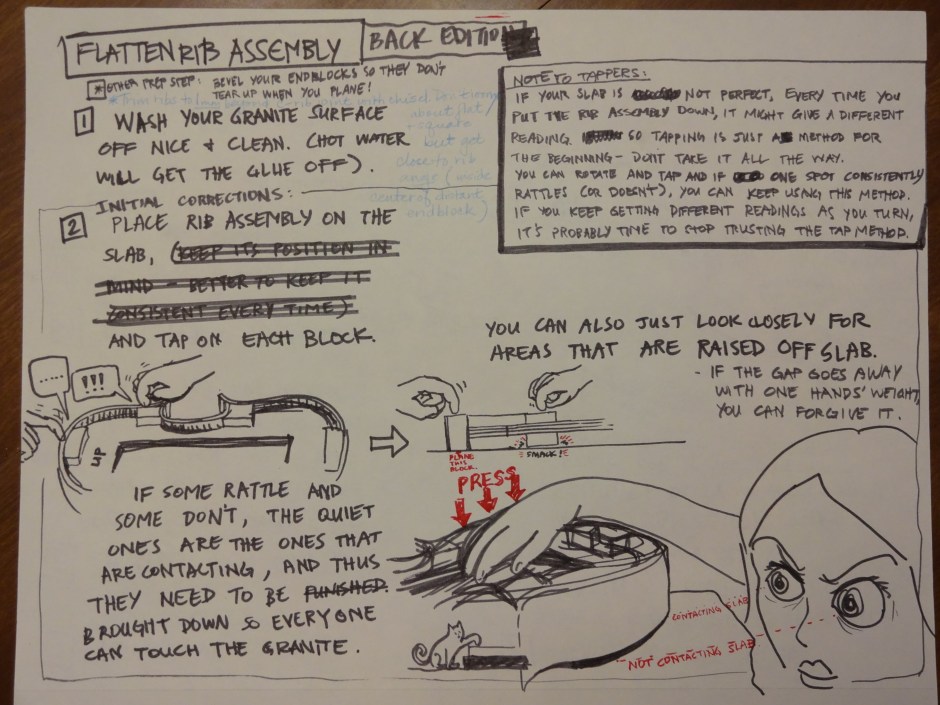 FLATTEN RIB ASSEMBLY
BACK EDITION
* OTHER PREP STEP: BEVEL YOUR ENDBLOCKS SO THEY DON'T
TEAR UP WHEN YOU PLANE!
* Trim ribs to 1mm beyond
with chisel.
about flat/
+ square
but got
close to rib
center of
endblock)
1 WASH YOUR GRANITE SURFACE
OFF NICE & CLEAN. (HOT WATER
WILL GET THE GLUE OFF).
INITIAL CORRECTIONS:
2 PLACE RIB ASSEMBLY ON THE
SLAB, (KEEP ITS POSITION IN
MIND - BETTER TO KEEP IT
CONSISTENT EVERY TIME)
AND TAP ON EACH BLOCK.
NOTE TO TAPPERS:
IF YOUR SLAB IS NOT PERFECT, EVERY TIME YOU
PUT THE RIB ASSEMBLY DOWN, IT MIGHT GIVE A DIFFERENT
READING. SO TAPPING IS JUST A METHOD FOR
THE BEGINNING - DON'T TAKE IT ALL THE WAY.
YOU CAN ROTATE AND TAP AND IF ONE SPOT CONSISTENTLY
RATTLES (OR DOESN'T), YOU CAN KEEP USING THIS METHOD.
IF YOU KEEP GETTING DIFFERENT READINGS AS YOU TURN,
IT'S PROBABLY TIME TO STOP TRUSTING THE TAP METHOD.
YOU CAN ALSO JUST LOOK CLOSELY FOR
AREAS THAT ARE RAISED OFF SLAB.
- IF THE GAP GOES AWAY
WITH ONE HANDS' WEIGHT,
YOU CAN FORGIVE IT.
.....
!!!
UP
PLANE
THIS
BLOCK
SMACK!
IF SOME RATTLE AND
SOME DON'T, THE QUIET
ONES ARE THE ONES THAT
ARE CONTACTING, AND THUS
THEY NEED TO BE FUNISHED.
BROUGHT DOWN SO EVERYONE
CAN TOUCH THE GRANITE.
PRESS
CONTACTING SLAB
NOT CONTACTING SLAB